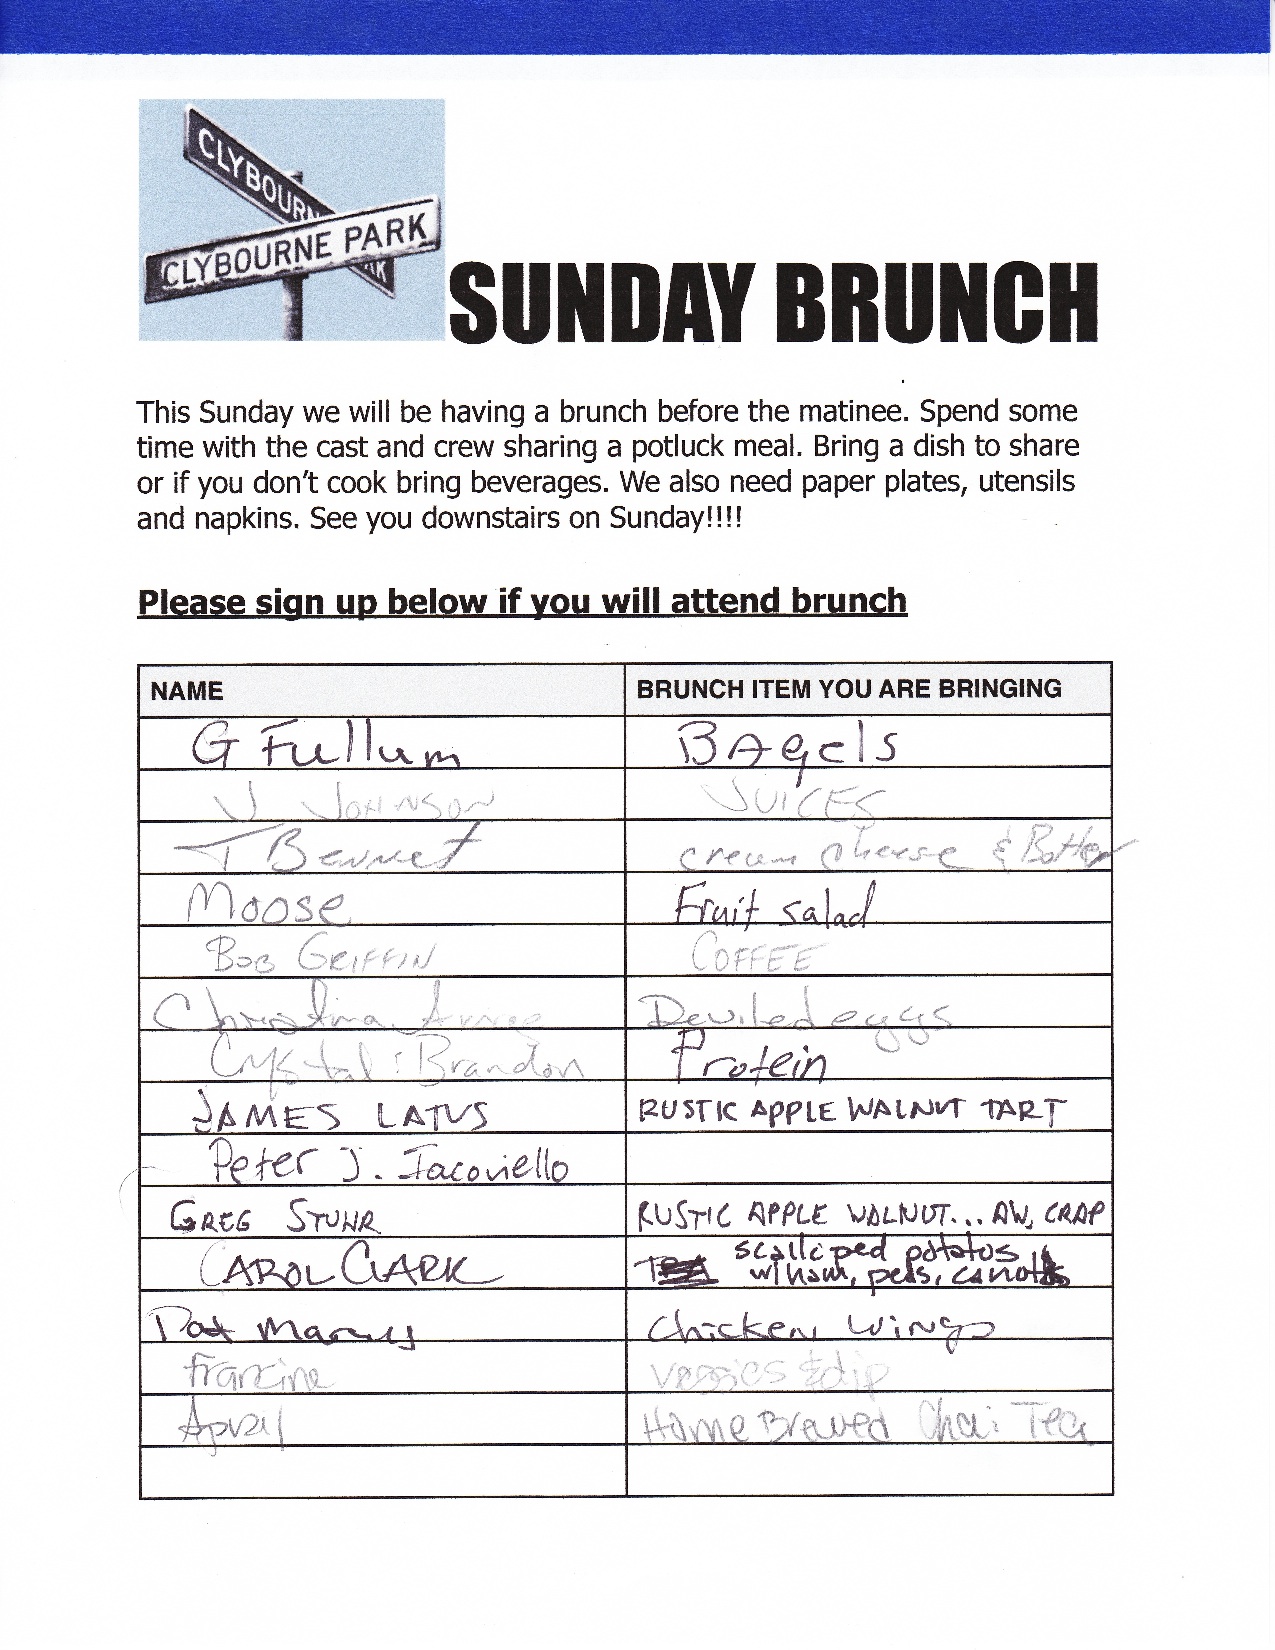 CLYBOURN
CLYBOURNE PARK
SUNDAY BRUNCH
This Sunday we will be having a brunch before the matinee. Spend some
time with the cast and crew sharing a potluck meal. Bring a dish to share
or if you don't cook bring beverages. We also need paper plates, utensils
and napkins. See you downstairs on Sunday!!!!
Please sign up below if you will attend brunch
NAME BRUNCH ITEM YOU ARE BRINGING
G Fullum BAgels
J Johnson JUICES
T Bennet cream cheese & Butter
Moose Fruit salad
BOB GRIFFIN COFFEE
Christina Deviled eggs
Crystal & Brandon Protein
JAMES LATUS RUSTIC APPLE WALNUT TART
Peter J. Iacoviello
GREG STUHR RUSTIC APPLE WALNUT... AW, CRAP
CAROL CLARK scalloped potatos
w/ham, peas,
Pat Chicken Wings
francine veggies & dip
April Home Brewed Chai Tea